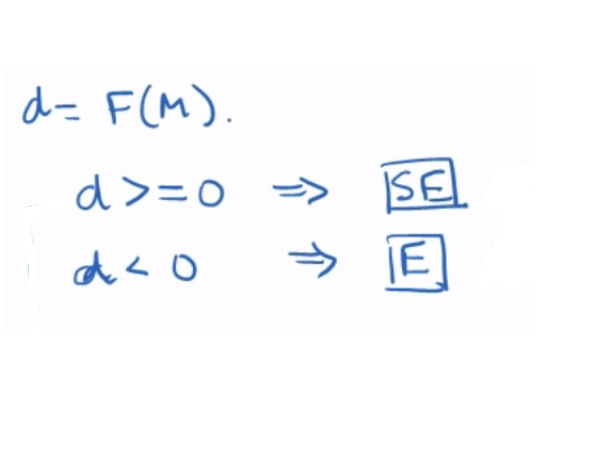 d = F(M).
d >= 0 ⇒ SE
d < 0 ⇒ E